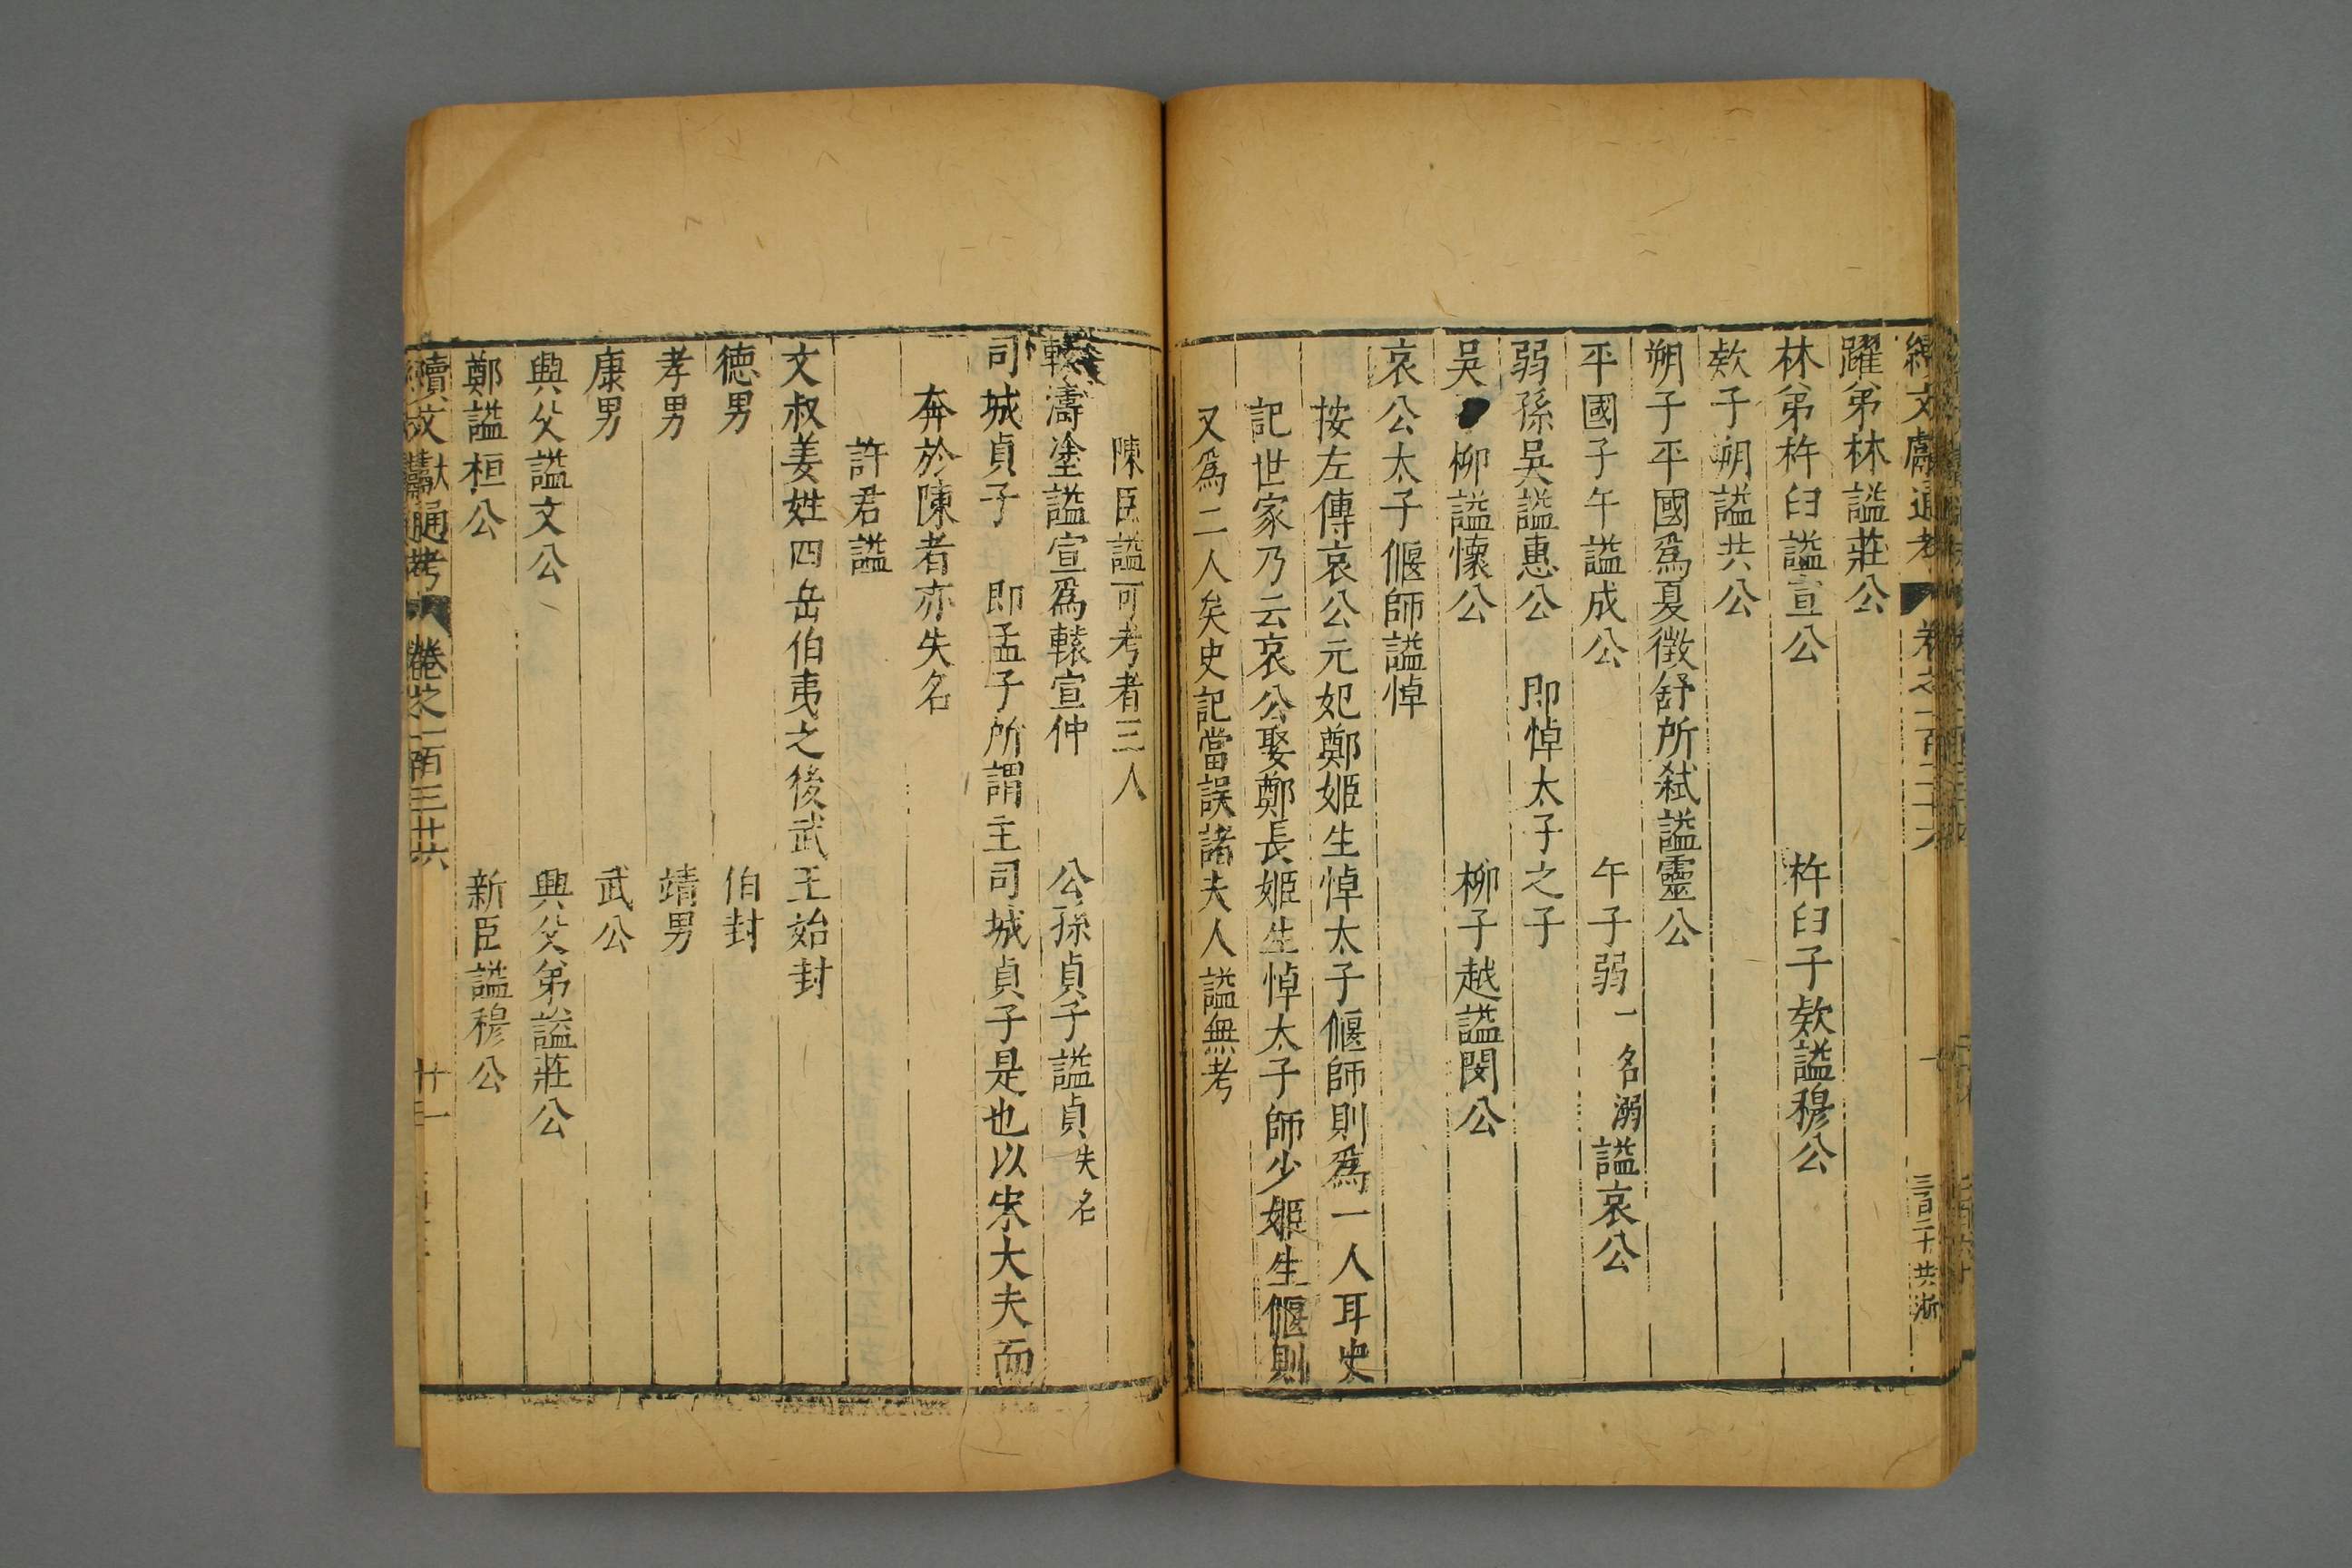 續文獻通考 卷之一百三十六
躍弟林謚莊公
林弟杵臼謚宣公 杵臼子欵謚穆公
欵子朔謚共公
朔子平國爲夏徵舒所弑謚靈公
平國子午謚成公 午子弱一名溺謚哀公
弱孫吳謚惠公 即悼太子之子
吳 柳謚懷公 柳子越謚閔公
哀公太子偃師謚悼
按左傳哀公元妃鄭姬生悼太子偃師則爲一人耳史
記世家乃云哀公娶鄭長姬生悼太子師少姬生偃則
又爲二人矣史記當誤諸夫人謚無考
陳臣謚可考者三人
轅濤塗謚宣爲轅宣仲 公孫貞子謚貞失名
司城貞子 即孟子所謂主司城貞子是也以宋大夫而
奔於陳者亦失名
許君謚
文叔姜姓四岳伯夷之後武王始封
德男 伯封
孝男 靖男
康男 武公
興父謚文公 興父弟謚莊公
鄭謚桓公 新臣謚穆公
續文獻通考 卷之一百三十六